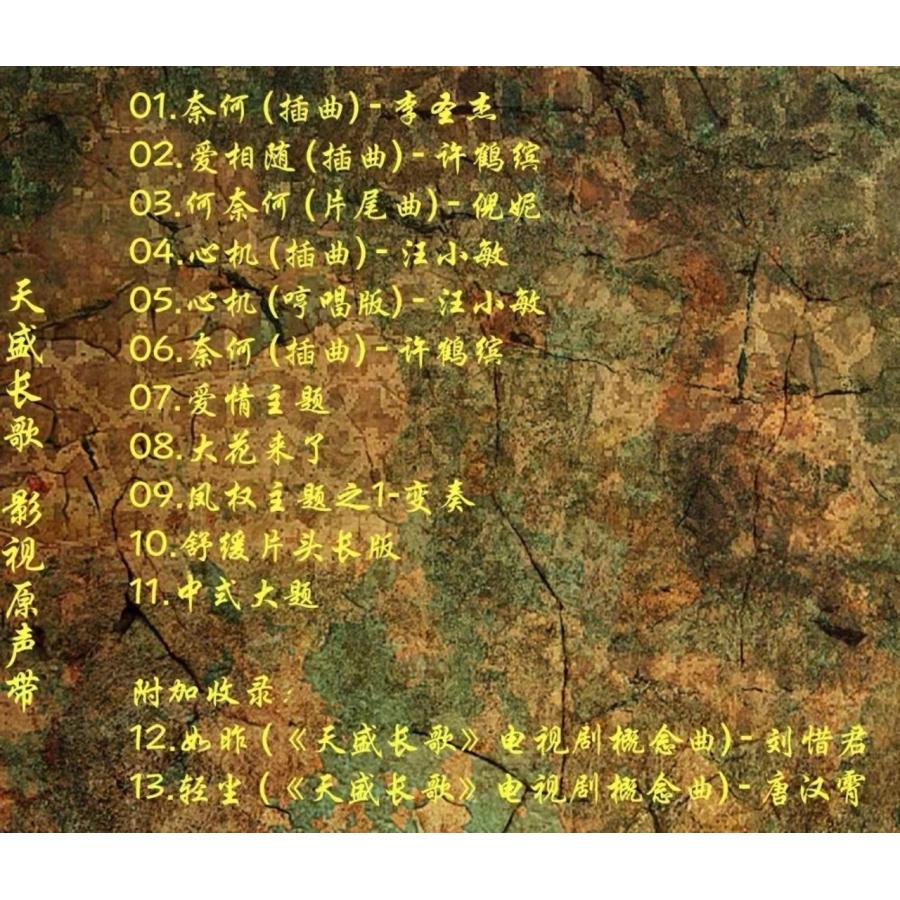 天盛长歌 影视原声带
01.奈何(插曲)-李圣杰
02.爱相随(插曲)-许鹤缤
03.何奈何(片尾曲)-倪妮
04.心机(插曲)-汪小敏
05.心机(哼唱版)-汪小敏
06.奈何(插曲)-许鹤缤
07.爱情主题
08.大花来了
09.凤权主题之1-变奏
10.舒缓片头长版
11.中式大题
附加收录：
12.如昨(《天盛长歌》电视剧概念曲)-刘惜君
13.轻尘(《天盛长歌》电视剧概念曲)-唐汉霄